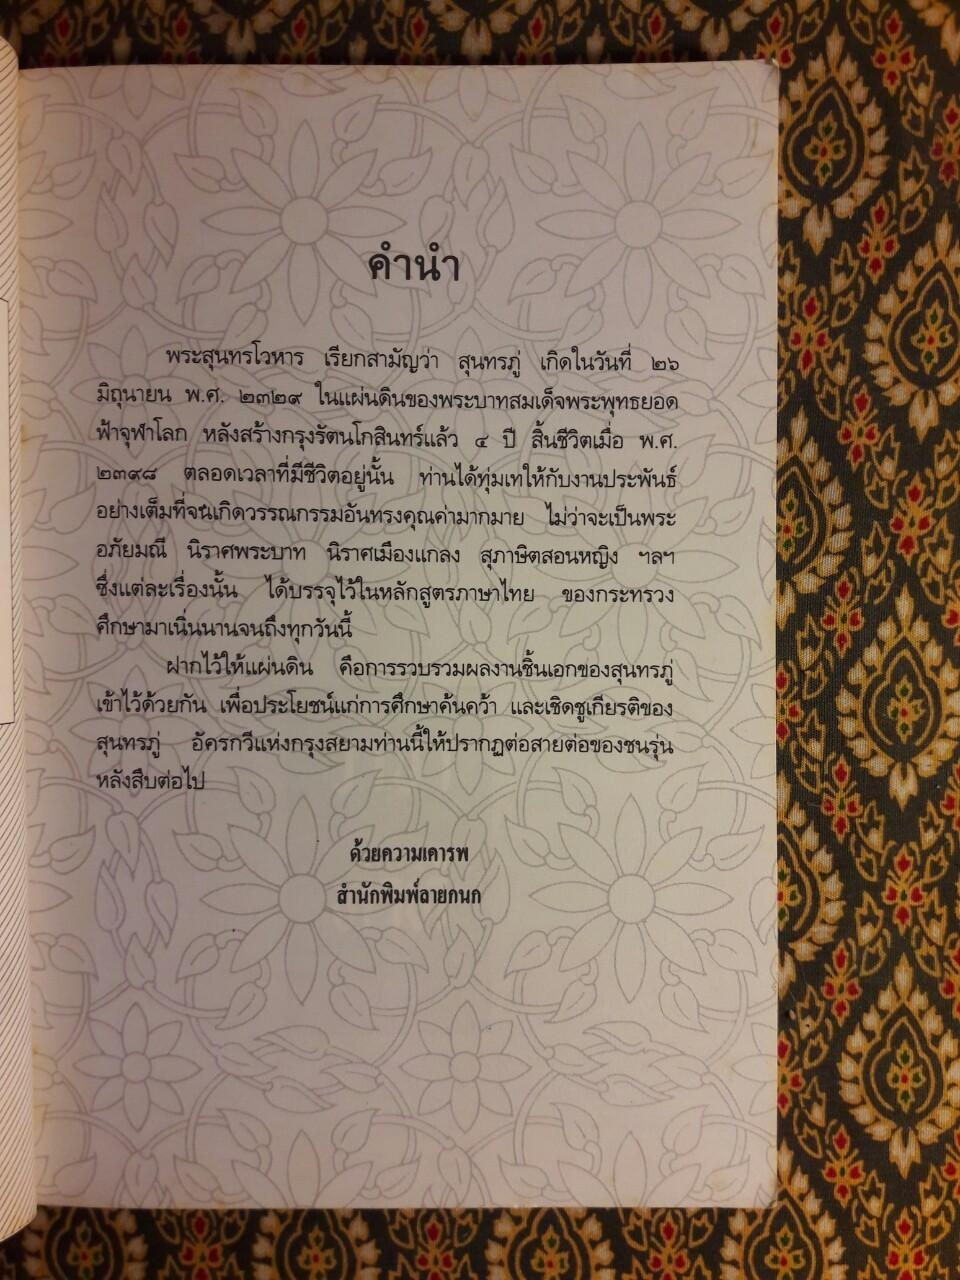 คำนำ
พระสุนทรโวหาร เรียกสามัญว่า สุนทรภู่ เกิดในวันที่ ๒๖
มิถุนายน พ.ศ. ๒๓๒๙ ในแผ่นดินของพระบาทสมเด็จพระพุทธยอด
ฟ้าจุฬาโลก หลังสร้างกรุงรัตนโกสินทร์แล้ว ๔ ปี สิ้นชีวิตเมื่อ พ.ศ.
๒๓๙๘ ตลอดเวลาที่มีชีวิตอยู่นั้น ท่านได้ทุ่มเทให้กับงานประพันธ์
อย่างเต็มที่จนเกิดวรรณกรรมอันทรงคุณค่ามากมาย ไม่ว่าจะเป็นพระ
อภัยมณี นิราศพระบาท นิราศเมืองแกลง สุภาษิตสอนหญิง ฯลฯ
ซึ่งแต่ละเรื่องนั้น ได้บรรจุไว้ในหลักสูตรภาษาไทย ของกระทรวง
ศึกษามาเนิ่นนานจนถึงทุกวันนี้
ฝากไว้ให้แผ่นดิน คือการรวบรวมผลงานชิ้นเอกของสุนทรภู่
เข้าไว้ด้วยกัน เพื่อประโยชน์แก่การศึกษาค้นคว้า และเชิดชูเกียรติของ
สุนทรภู่ อัครกวีแห่งกรุงสยามท่านนี้ให้ปรากฏต่อสายต่อของชนรุ่น
หลังสืบต่อไป
ด้วยความเคารพ
สำนักพิมพ์ลายกนก